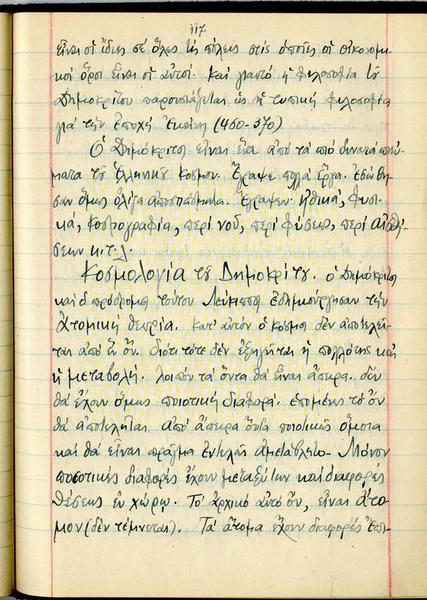 117
εἶναι οἱ ἴδιες σέ ὅλες τίς πόλεις στίς ὁποῖες οἱ οἰκονομι-
κοί ὅροι εἶναι οἱ αὐτοί. Καί γιαυτό ἡ φιλοσοφία τοῦ
Δημοκρίτου παρουσιάζεται ὡς ἡ τυπική φιλοσοφία
γιά τήν ἐποχή ἐκείνη (460-370)
Ὁ Δημόκριτος εἶναι ἕνα ἀπό τά πιό δυνατά πνεύ-
ματα τοῦ Ἑλληνικοῦ κόσμου. Ἔγραψε πολλά ἔργα. Ἐσώθη-
σαν ὅμως ὀλίγα ἀποσπάσματα. Ἔγραψεν ἠθικά, φυσι-
κά, κοσμογραφία, περί νοῦ, περί φύσεως, περί αἰσθή-
σεων κ.τ.λ.
Κοσμολογία τοῦ Δημοκρίτου. Ὁ Δημόκριτος
καί ὁ πρόδρομος τούτου Λεύκιππος ἐδημιούργησαν τήν
Ἀτομική θεωρία. Κατ' αὐτόν ὁ κόσμος δέν ἀποτελεῖ-
ται ἀπό ἕν ὄν. Διότι τότε δέν ἐξηγεῖται ἡ πολλότης καί
ἡ μεταβολή. Λοιπόν τά ὄντα θά εἶναι ἄπειρα. Δέν
θά ἔχουν ὅμως ποιοτική διαφορά. Ἑπομένως τό ὄν
θά ἀποτελῆται ἀπό ἄπειρα ὄντα ποιοτικῶς ὅμοια
καί θά εἶναι πρᾶγμα ἐντελῶς ἀμετάβλητο. Μόνον
ποσοτικές διαφορές ἔχουν μεταξύ των καί διαφορές
θέσεως ἐν χώρῳ. Τό ἀρχικό αὐτό ὄν, εἶναι ἄτο-
μον (δέν τέμνεται). Τά ἄτομα ἔχουν διαφορές